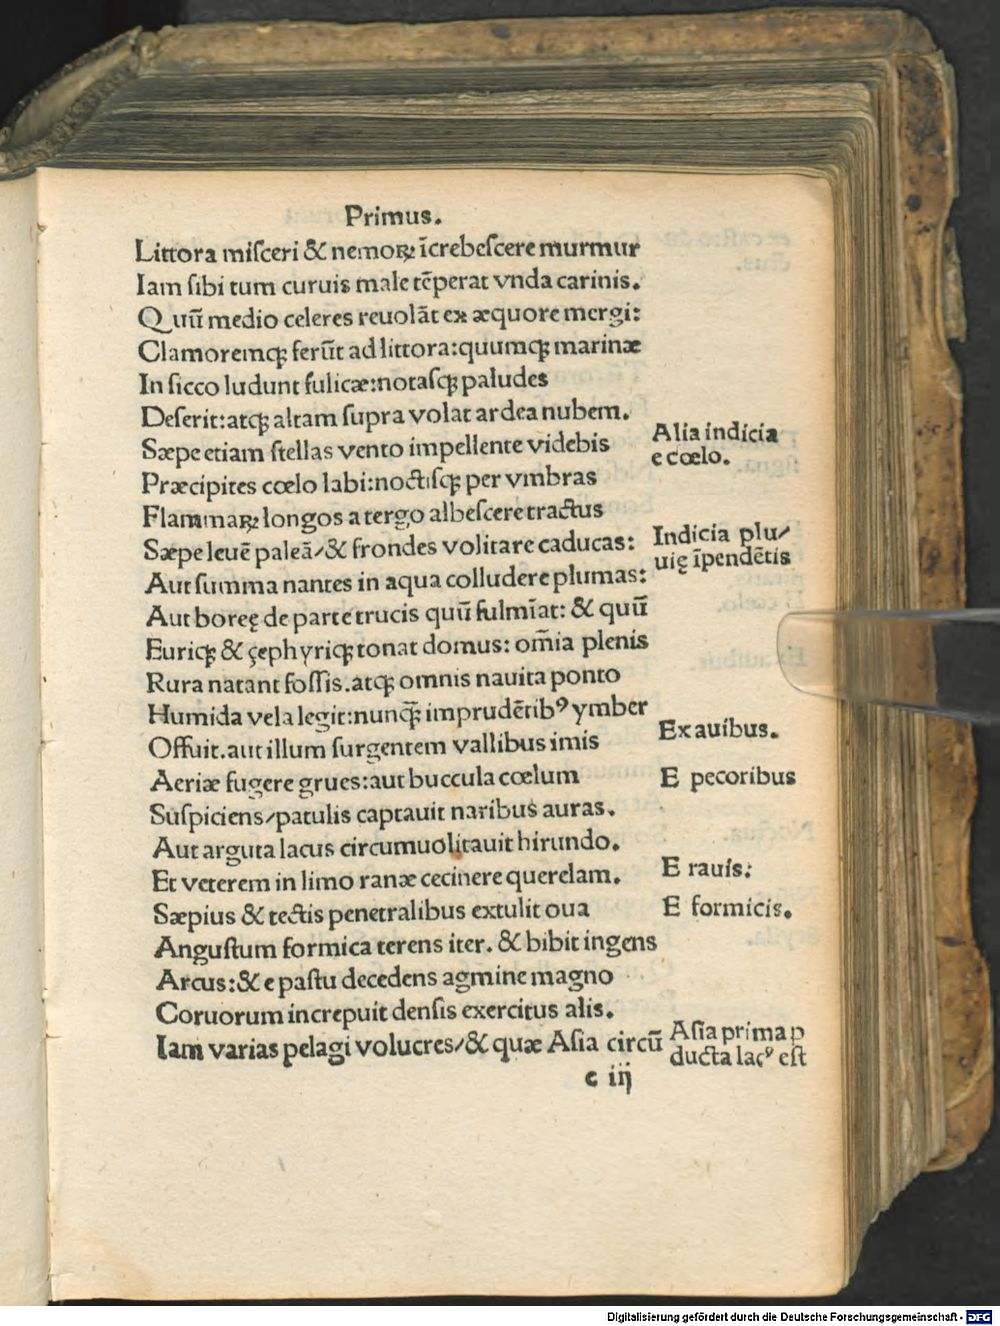 Primus.
Littora miſceri & nemoꝝ īcrebeſcere murmur
Iam ſibi tum curuis male tēperat vnda carinis.
Quū medio celeres reuolāt ex æquore mergi:
Clamoremqꝫ ferūt ad littora:quumqꝫ marinæ
In ſicco ludunt fulicæ:notaſqꝫ paludes
Deſerit:atqꝫ altam ſupra volat ardea nubem.
Sæpe etiam ſtellas vento impellente videbis
Alia indicia
e cœlo.
Præcipites cœlo labi:noctiſqꝫ per vmbras
Flammaꝝ longos a tergo albeſcere tractus
Sæpe leuē paleā/& frondes volitare caducas:
Indicia plu/
uię īpendētis
Aut ſumma nantes in aqua colludere plumas:
Aut boreę de parte trucis quū fulmīat: & quū
Euriqꝫ & çephyriqꝫ tonat domus: om̄ia plenis
Rura natant foſſis.atqꝫ omnis nauita ponto
Humida vela legit:nunqꝫ̄ imprudētibꝰ ymber
Offuit.aut illum ſurgentem vallibus imis
Ex auibus.
Aeriæ fugere grues:aut buccula cœlum
E pecoribus
Suſpiciens/patulis captauit naribus auras.
Aut arguta lacus circumuolitauit hirundo.
Et veterem in limo ranæ cecinere querelam.
E ranis:
Sæpius & tectis penetralibus extulit oua
E formicis.
Anguſtum formica terens iter. & bibit ingens
Arcus:& e paſtu decedens agmine magno
Coruorum increpuit denſis exercitus alis.
Iam varias pelagi volucres/& quæ Aſia circū
Aſia prima ꝓ
ducta lacꝰ eſt
c iij
Digitalisierung gefördert durch die Deutsche Forschungsgemeinschaft - DFG